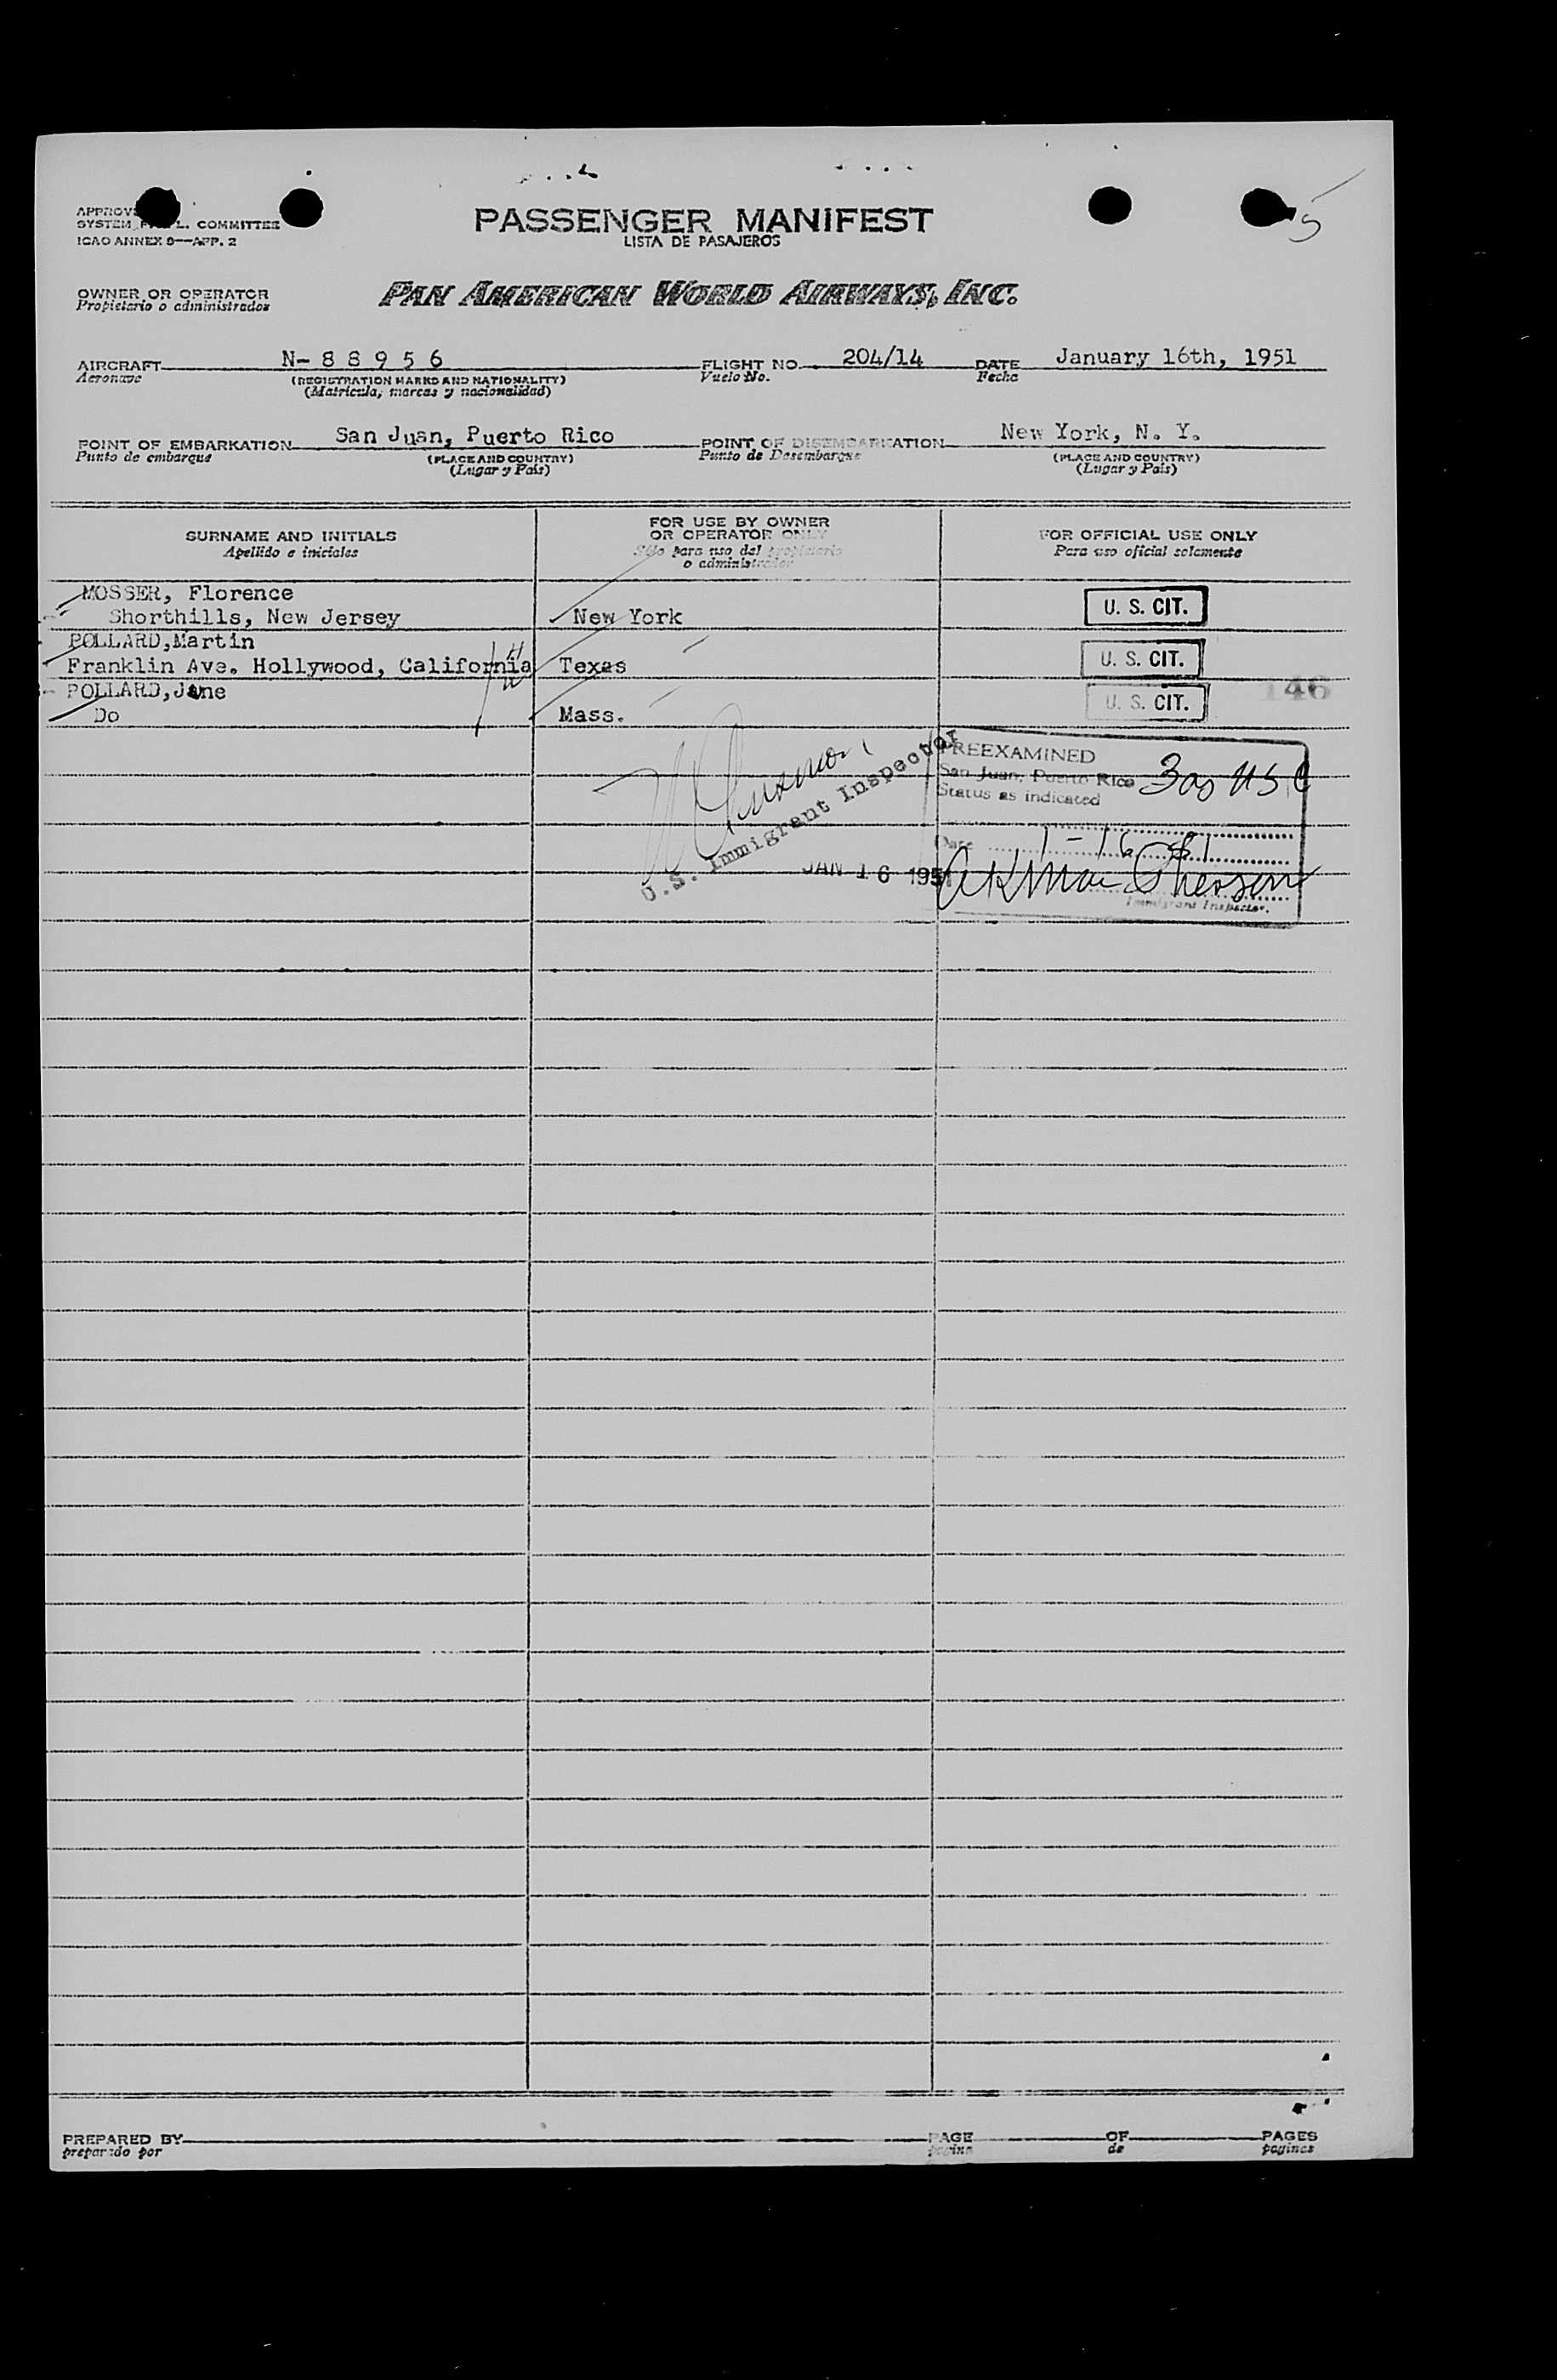 5
PASSENGER MANIFEST
LISTA DE PASAJEROS
SYSTEM COMMITTEE
ICAO ANNEX 9—APP. 2
OWNER OR OPERATOR
Propietario o administrador
PAN AMERICAN WORLD AIRWAYS, INC.
AIRCRAFT N- 8 8 9 5 6 FLIGHT NO. 204/14 DATE January 16th, 1951
Aeronave (REGISTRATION MARKS AND NATIONALITY) Vuelo No. Fecha
(Matricula, marcas y nacionalidad)
POINT OF EMBARKATION San Juan, Puerto Rico POINT OF DISEMBARKATION New York, N. Y.
Punto de embarque (PLACE AND COUNTRY) Punto de Desembarque (PLACE AND COUNTRY)
(Lugar y País) (Lugar y País)
SURNAME AND INITIALS
Apellido e iniciales
FOR USE BY OWNER
OR OPERATOR ONLY
Sólo para uso del propietario
o administrador
FOR OFFICIAL USE ONLY
Para uso oficial solamente
MOSSER, Florence
Shorthills, New Jersey New York U. S. CIT.
POLLARD,Martin
Franklin Ave. Hollywood, California Texas U. S. CIT.
POLLARD,Jane
Do Mass. U. S. CIT. 146
U.S. Immigrant Inspector
JAN 16 1951
PREEXAMINED
San Juan, Puerto Rico
Status as indicated
Date 1-16-51
Immigrant Inspector.
PREPARED BY PAGE OF PAGES
preparado por pagina de paginas